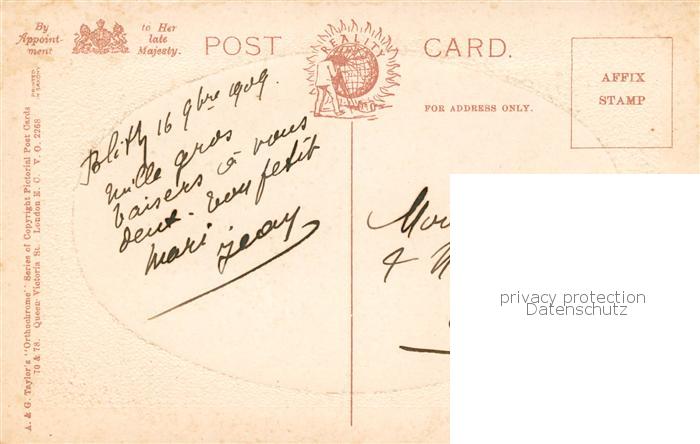 By
Appoint-
ment
to Her
late
Majesty.
POST CARD.
REALITY
FOR ADDRESS ONLY.
AFFIX
STAMP
PRINTED
IN SAXONY
A. & G. Taylor's "Orthochrome" Series of Copyright Pictorial Post Cards
70 & 78. Queen Victoria St. London E. C. V. O. 2268
Blith 16 9bre 1909.
mille gros
baisers à vous
deux. ton petit
mari Jean
&
privacy protection
Datenschutz